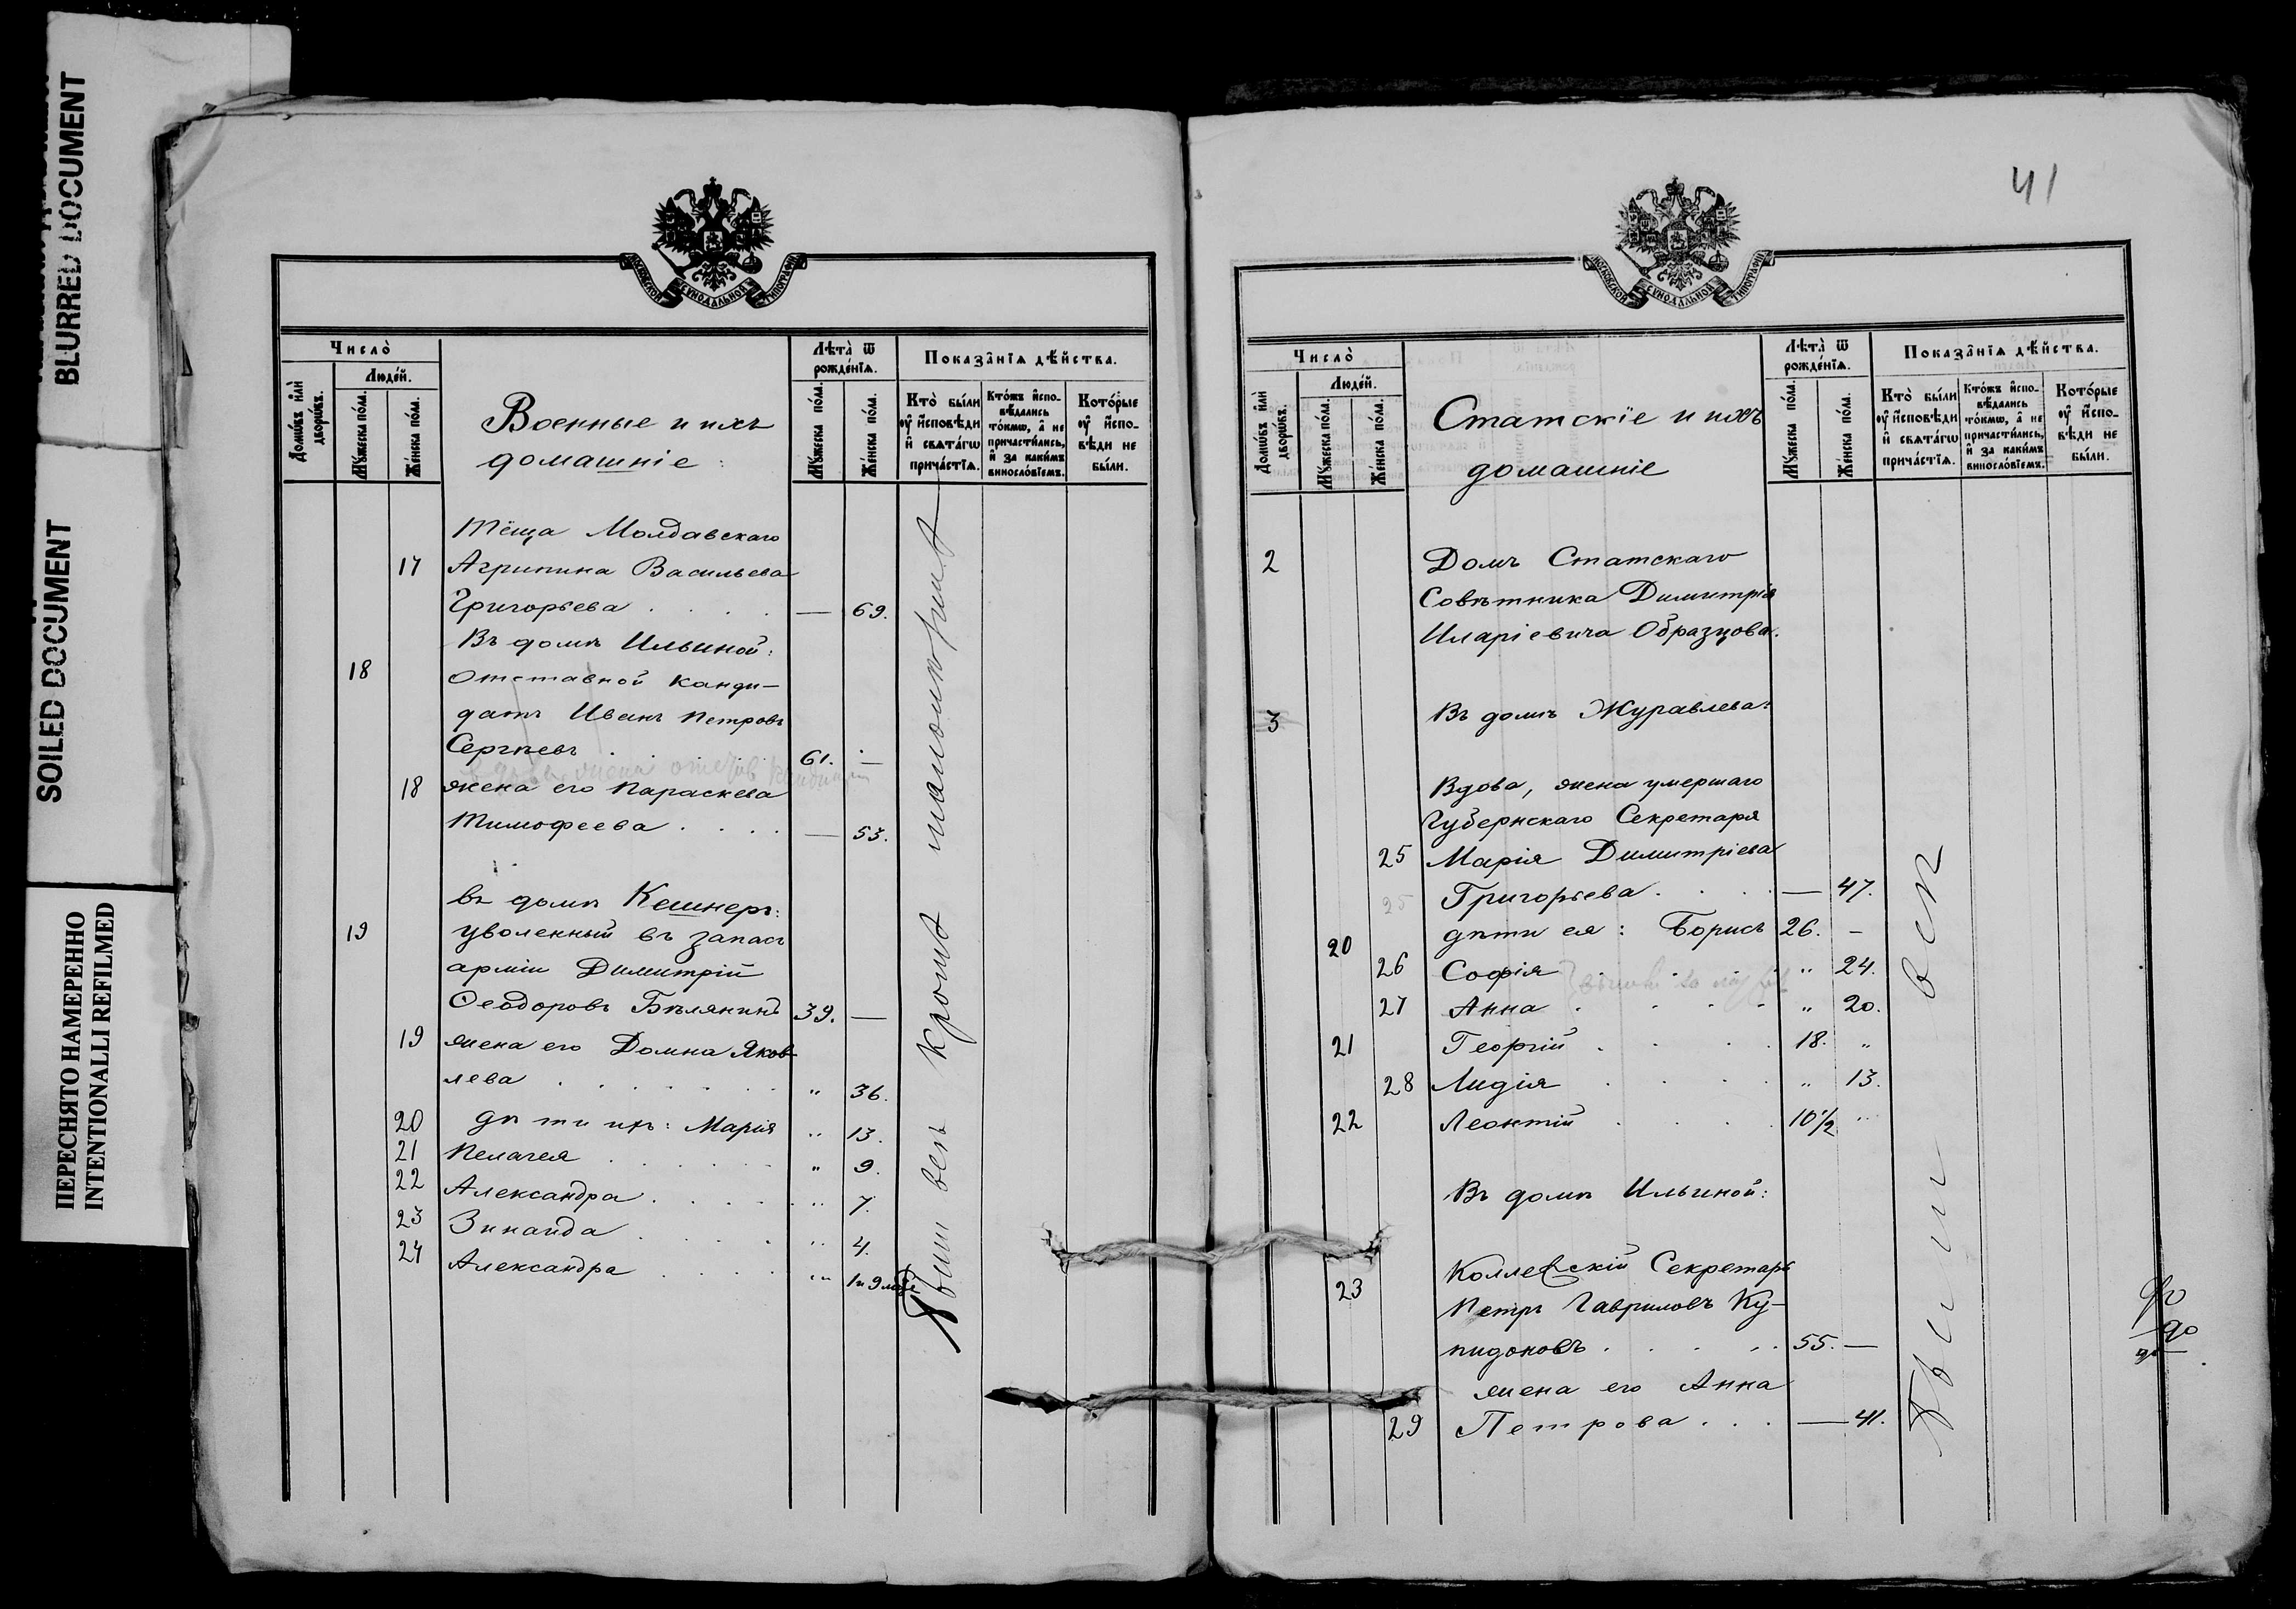 BLURRED DOCUMENT
SOILED DOCUMENT
ПЕРЕСНЯТО НАМЕРЕННО
INTENTIONALLI REFILMED
МОСКОВСКОЙ СѴНОДАЛЬНОЙ ТИПОГРАФІИ
Число̀
Домѡ́въ и҆лѝ дворѡ́въ.
Люде́й.
Мꙋ́жеска по́ла.
Же́нска по́ла.
Военные и ихъ
домашніе:
Лѣта̀ ѿ рожде́нїѧ.
Мꙋ́жеска по́ла.
Же́нска по́ла.
Показа̑нїѧ дѣ́йства.
Кто̀ бы́ли ᲂу҆ и҆сповѣ́ди и҆ свѧта́гѡ прича́стїѧ.
Кто́жъ и҆спо-вѣ́дались то́кмѡ, а҆ не причасти́лись, и҆ за каки́мъ винослові́емъ.
Кото́рые ᲂу҆ и҆спо-вѣ́ди не бы́ли.
Тёща Молдавскаго
17 Агрипина Васильева
Григорьева . . . . — 69.
Въ домѣ Ильиной:
18 Отставной канди-
датъ Иванъ Петровъ
Сергѣевъ . . . . 61. —
18 жена его Параскева
Тимофеева . . . . — 53.
въ домѣ Кешнеръ:
19 уволенный въ запасъ
арміи Димитрій
Ѳеодоровъ Бѣлянинъ 39. —
19 жена его Домна Яков-
лева . . . . . . „ 36.
20 дѣти ихъ: Марія „ 13.
21 Пелагея . . . . . „ 9.
22 Александра . . . . „ 7.
23 Зинаида . . . . „ 4.
24 Александра . . . . „ 1 и 9 мѣс.
были всѣ кромѣ малолѣтних
41
МОСКОВСКОЙ СѴНОДАЛЬНОЙ ТИПОГРАФІИ
Число̀
Домѡ́въ и҆лѝ дворѡ́въ.
Люде́й.
Мꙋ́жеска по́ла.
Же́нска по́ла.
Статскіе и ихъ
домашніе
Лѣта̀ ѿ рожде́нїѧ.
Мꙋ́жеска по́ла.
Же́нска по́ла.
Показа̑нїѧ дѣ́йства.
Кто̀ бы́ли ᲂу҆ и҆сповѣ́ди и҆ свѧта́гѡ прича́стїѧ.
Кто́жъ и҆спо-вѣ́дались то́кмѡ, а҆ не причасти́лись, и҆ за каки́мъ винослові́емъ.
Кото́рые ᲂу҆ и҆спо-вѣ́ди не бы́ли.
2 Домъ Статскаго
Совѣтника Димитрія
Иларіевича Образцова.
3 Въ домѣ Журавлева:
Вдова, жена умершаго
Губернскаго Секретаря
25 Марія Димитріева
25 Григорьева . . . . — 47.
20 дѣти ея: Борисъ 26. —
26 Софія . . . . „ 24.
27 Анна . . . . „ 20.
21 Георгій . . . . 18. „
28 Лидія . . . . „ 13.
22 Леонтій . . . . 10½ „
Въ домѣ Ильиной:
23 Коллежскій Секретарь
Петръ Гавриловъ Ку-
пидоновъ . . . . . 55. —
жена его Анна
29 Петрова . . . — 41.
были всѣ